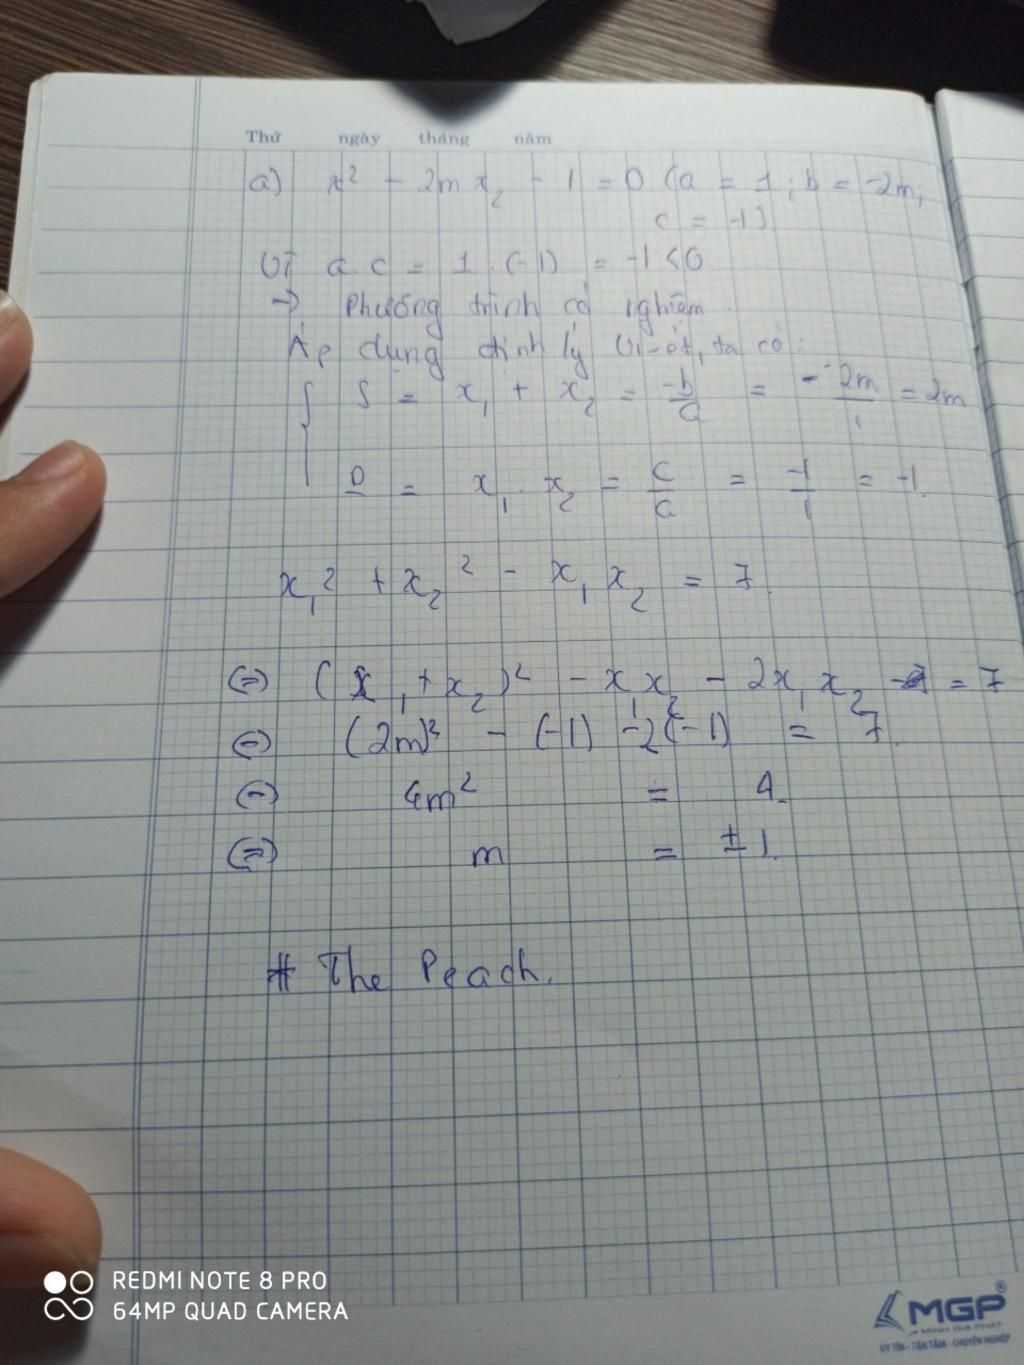 Thứ ngày tháng năm
a) x² - 2m x₂ - 1 = 0 (a = 1 ; b = -2m;
c = -1)
Vì a.c = 1.(-1) = -1 < 0
→ Phương trình có nghiệm.
Áp dụng định lý Vi-ét, ta có:
{ S = x₁ + x₂ = -b/a = - -2m/1 = 2m
P = x₁ . x₂ = c/a = -1/1 = -1.
x₁² + x₂² - x₁ x₂ = 7.
(=) (x₁ + x₂)² - x₁x₂ - 2x₁x₂ = 7
(=) (2m)² - (-1) - 2(-1) = 7.
(=) 4m² = 4.
(=) m = ±1.
# The Peach.
REDMI NOTE 8 PRO
64MP QUAD CAMERA
MGP
MINH GIA PHÁT
UY TÍN - TẬN TÂM - CHUYÊN NGHIỆP